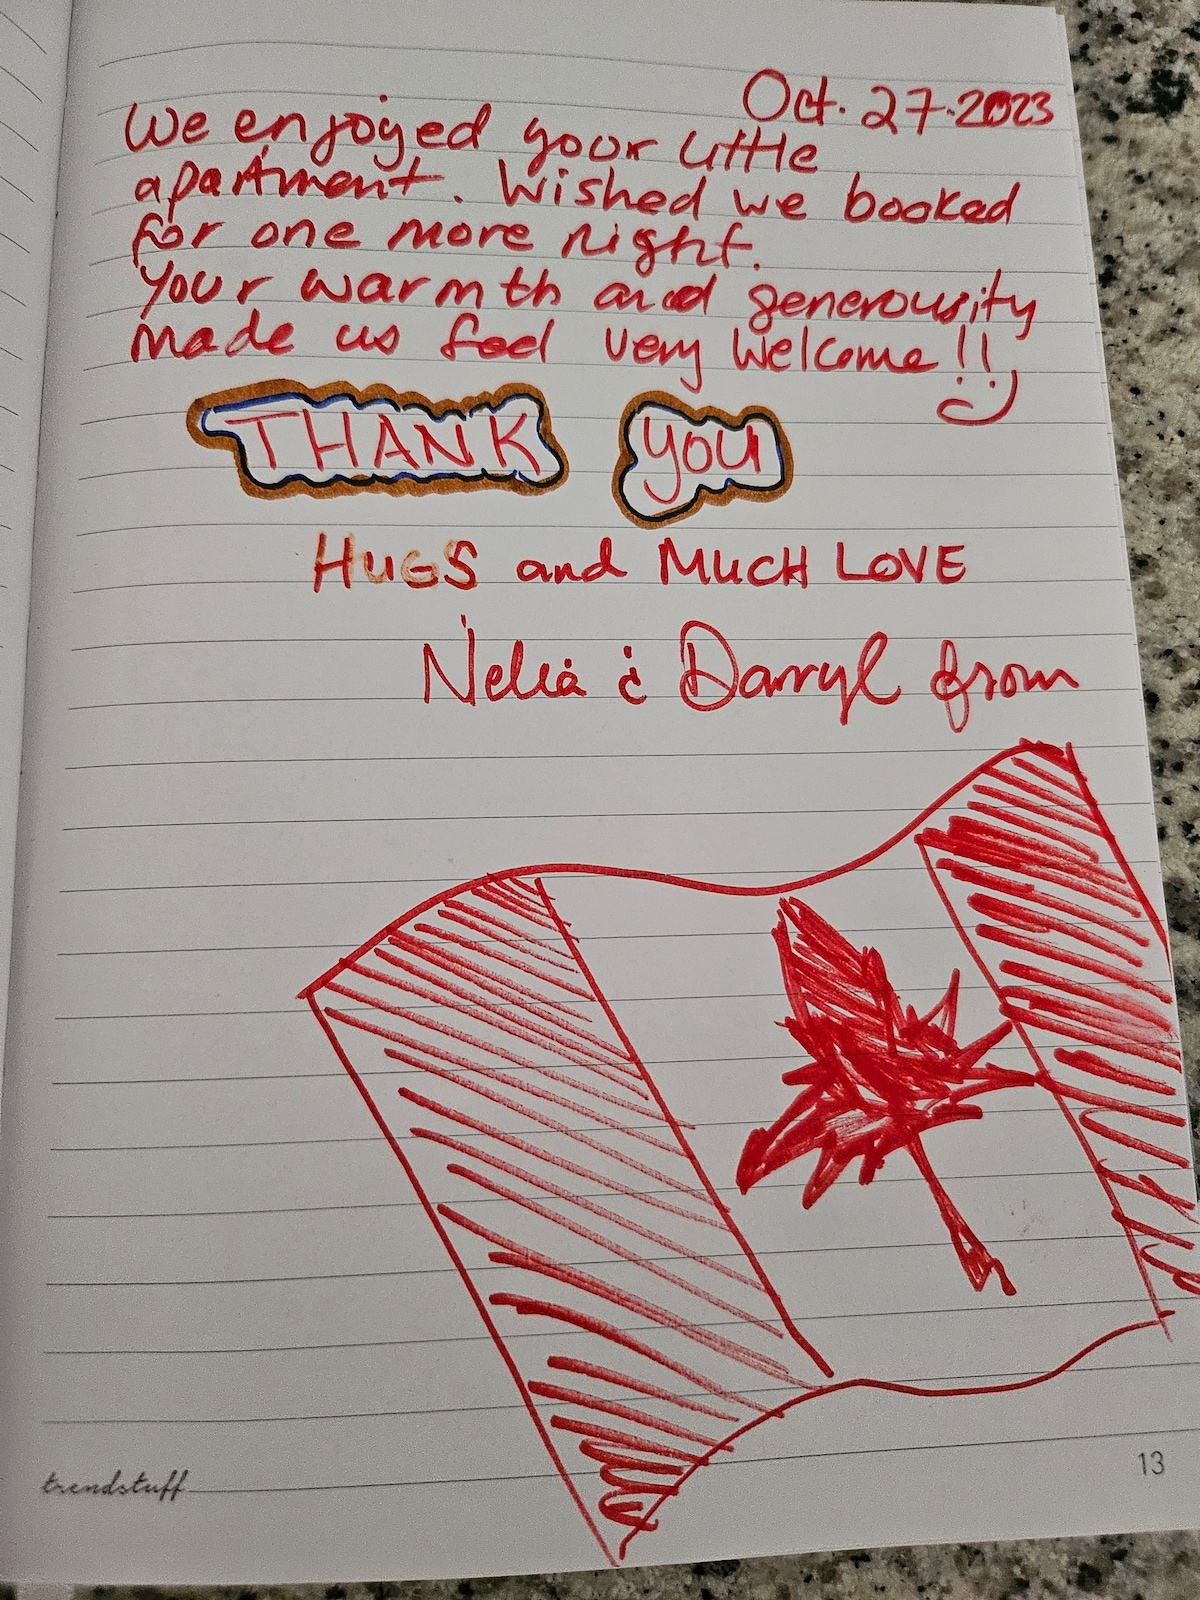 Oct. 27. 2023
We enjoyed your little
apartment. Wished we booked
for one more night.
Your warmth and generousity
made us feel very welcome!!
THANK YOU
HUGS and MUCH LOVE
Nelia & Darryl from
trendstuff
13